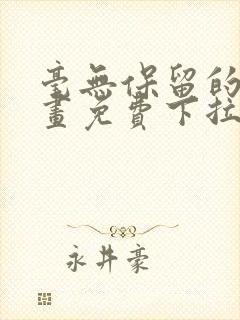 毫無保留的
畫免費下拉
永井豪